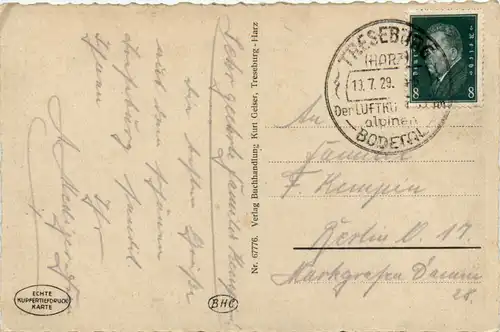 Sehr geehrte Familie Kempin!
Die besten Grüße
aus dem schönen
Treseburg sendet
Ihnen Ihr
ECHTE
KUPFERTIEFDRUCK
KARTE
BHC
Nr. 67776. Verlag Buchhandlung Kurt Geiser, Treseburg-Harz
TRESEBURG
(HARZ)
13.7.29.
Der LUFTKURORT im
alpinen
BODETAL
Deutsches Reich
8 8
An
Familie
F Kempin
Berlin O. 17.
Markgrafen Damm
28.